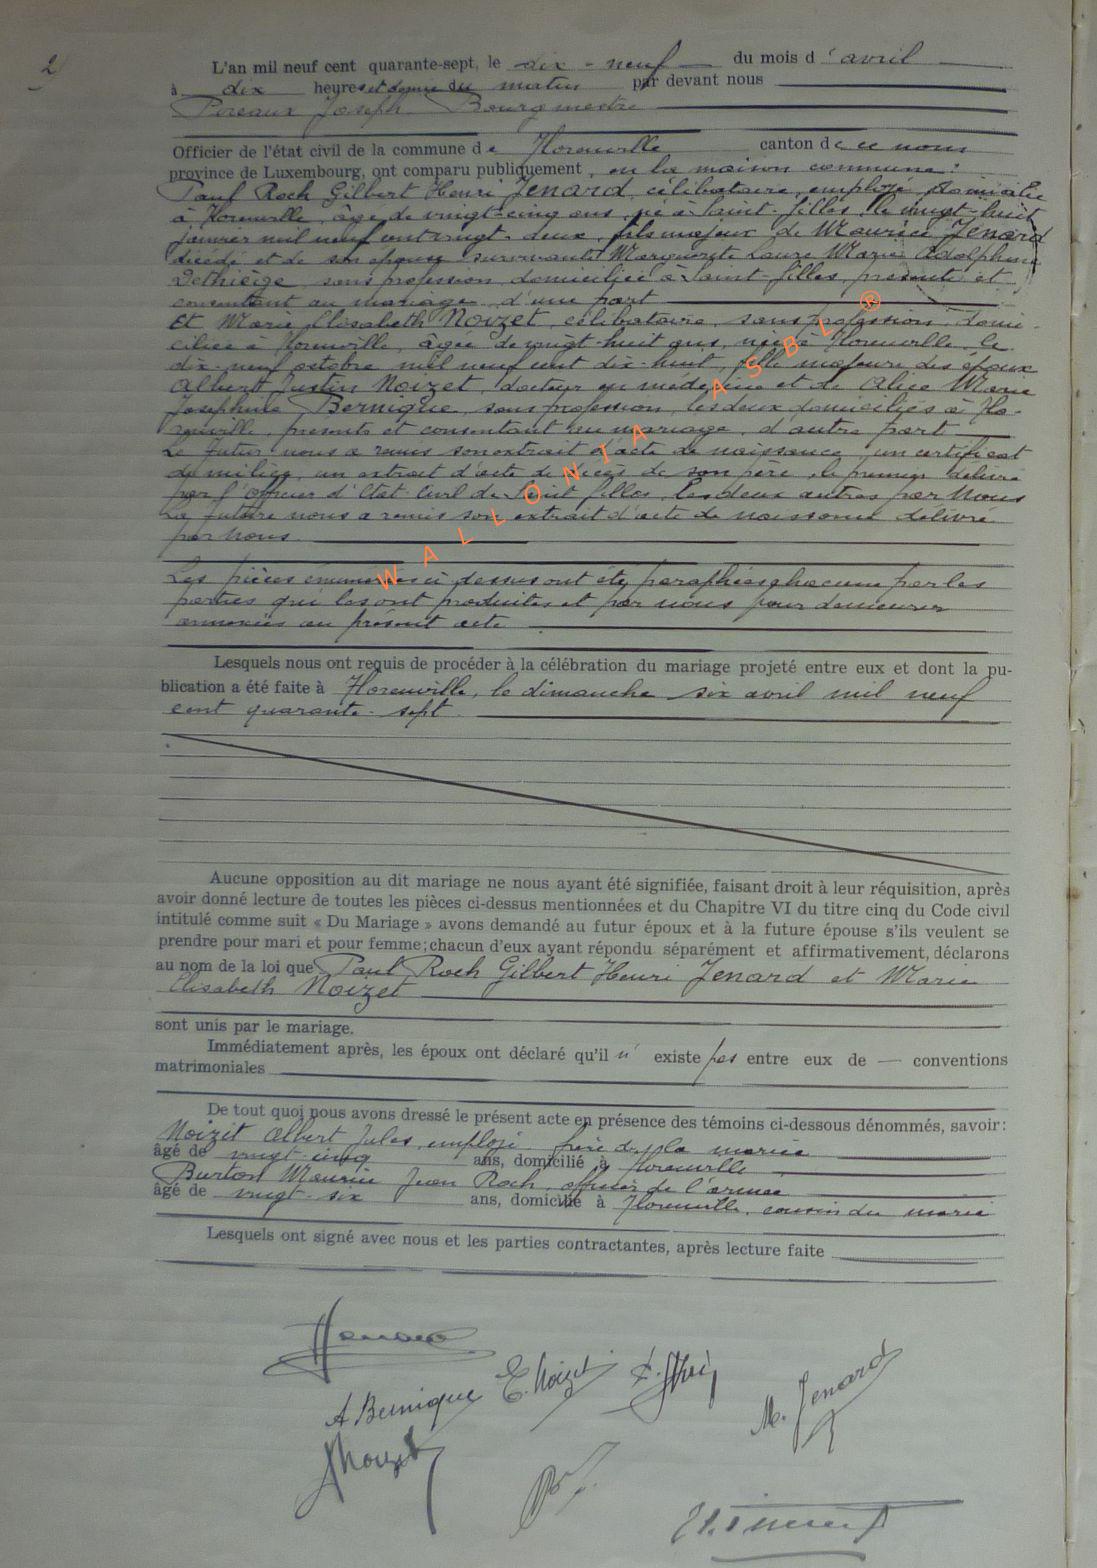 2
L'an mil neuf cent quarante-sept, le dix-neuf du mois d'avril
à dix heures et demie du matin par devant nous
Joseph Bourgmestre
Officier de l'état civil de la commune de Florenville canton de ce nom
province de Luxembourg, ont comparu publiquement, en la maison commune:
Paul Roch Gilbert Henri Jenard, célibataire, employé domicilié
à Florenville, âgé de vingt-cinq ans, né à Saint-Gilles, le vingt-huit
janvier mil neuf cent vingt-deux, fils majeur de Maurice Jenard
décédé et de son épouse survivante Marguerite Laure Marie Adolphine
Dethiège sans profession domiciliée à Saint-Gilles présente et
consentant au mariage d'une part
Et Marie Elisabeth Noizet, célibataire, sans profession, domi-
ciliée à Florenville, âgée de vingt-huit ans, née à Florenville, le
dix-neuf octobre mil neuf cent dix-huit, fille majeure des époux
Albert Justin Noizet, docteur en médecine et de Alice Marie
Josephine Bernique, sans profession, les deux domiciliés à Flo-
renville, présents et consentant au mariage, d'autre part
Le futur nous a remis son extrait d'acte de naissance, un certificat
de milice, un extrait d'acte de décès de son père, le premier délivré
par l'Officier d'Etat Civil de Saint Gilles, les deux autres par Nous
La future nous a remis son extrait d'acte de naissance délivré
par Nous.
Les pièces énumérées ci dessus ont été paraphées chacune par les
parties qui les ont produites et par nous pour demeurer
annexées au présent acte
Lesquels nous ont requis de procéder à la célébration du mariage projeté entre eux et dont la pu-
blication a été faite à Florenville, le dimanche six avril mil neuf
cent quarante-sept.
Aucune opposition au dit mariage ne nous ayant été signifiée, faisant droit à leur réquisition, après
avoir donné lecture de toutes les pièces ci-dessus mentionnées et du Chapitre VI du titre cinq du Code civil
intitulé comme suit « Du Mariage » avons demandé au futur époux et à la future épouse s'ils veulent se
prendre pour mari et pour femme; chacun d'eux ayant répondu séparément et affirmativement, déclarons
au nom de la loi que Paul Roch Gilbert Henri Jenard et Marie
Elisabeth Noizet
sont unis par le mariage.
Immédiatement après, les époux ont déclaré qu'il n'existe pas entre eux de — conventions
matrimoniales
De tout quoi nous avons dressé le présent acte en présence des témoins ci-dessous dénommés, savoir:
Noizet Albert Jules, employé frère de la mariée
âgé de vingt cinq ans, domicilié à Florenville
Burton Maurice Jean Roch, officier de l'armée
âgé de vingt-six ans, domicilié à Florenville, cousin du marié
Lesquels ont signé avec nous et les parties contractantes, après lecture faite
Jenard
E. Noizet
M. Jenard
A. Bernique
Noizet
WALLONIA ASBL ®